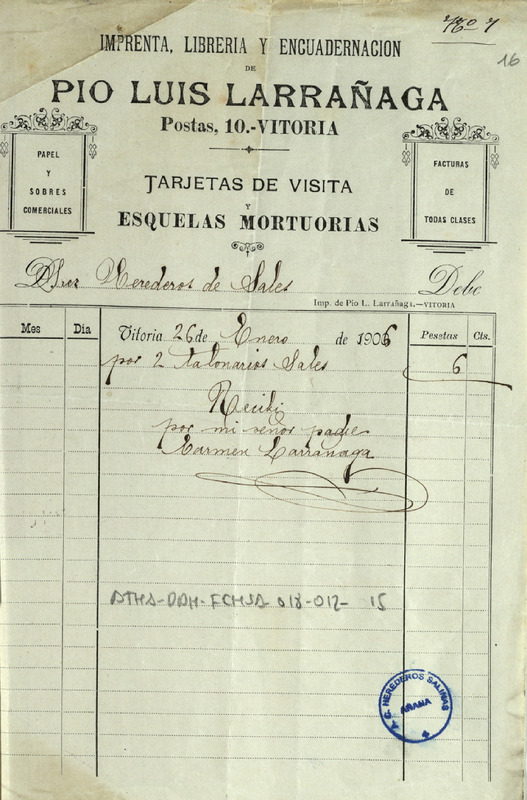 16
IMPRENTA, LIBRERIA Y ENCUADERNACION
DE
PIO LUIS LARRAÑAGA
Postas, 10.-VITORIA
PAPEL
Y
SOBRES
COMERCIALES
TARJETAS DE VISITA
Y
ESQUELAS MORTUORIAS
FACTURAS
DE
TODAS CLASES
Herederos de Sales Debe
Imp. de Pio L. Larrañaga.—VITORIA
Mes Dia Vitoria 26 de Enero de 1906 Pesetas Cts.
por 2 talonarios Sales 6
Recibi
por mi señor padre
Carmen Larrañaga
ATHA-DAH-FCHSA 018-012- 15
A. C. HEREDEROS SALINAS
AÑANA